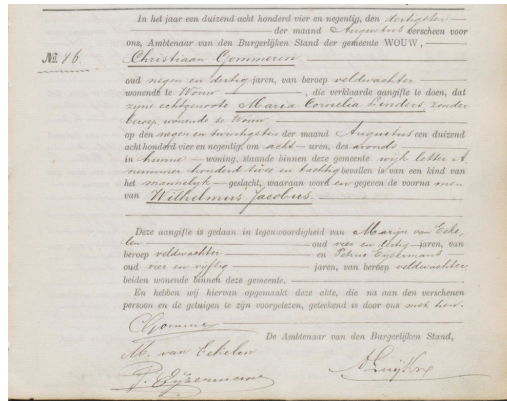 In het jaar een duizend acht honderd vier en negentig, den dertigsten
der maand Augustus verscheen voor
ons, Ambtenaar van den Burgerlijken Stand der gemeente WOUW,
No. 86.
Christiaan Gommeren
oud negen en dertig jaren, van beroep veldwachter
wonende te Wouw, die verklaarde aangifte te doen, dat
zijne echtgenoote Maria Cornelia Linders zonder
beroep wonende te Wouw
op den negen en twintigsten der maand Augustus een duizend
acht honderd vier en negentig, om acht uren, des avonds
in hunne woning, staande binnen deze gemeente wijk letter A
nummer honderd twee en tachtig bevallen is van een kind van
het mannelijk geslacht, waaraan word en gegeven de voorna men
van Wilhelmus Jacobus.
Deze aangifte is gedaan in tegenwoordigheid van Marijn van Eeke,
len oud vier en dertig jaren, van
beroep veldwachter en Petrus Eijzermans
oud vier en vijftig jaren, van beroep veldwachter
beiden wonende binnen deze gemeente.
En hebben wij hiervan opgemaakt deze akte, die na aan den verschenen
persoon en de getuigen te zijn voorgelezen, geteekend is door ons met hen.
CGommer
De Ambtenaar van den Burgerlijken Stand,
M. van Eekelen
P. Eijzermans